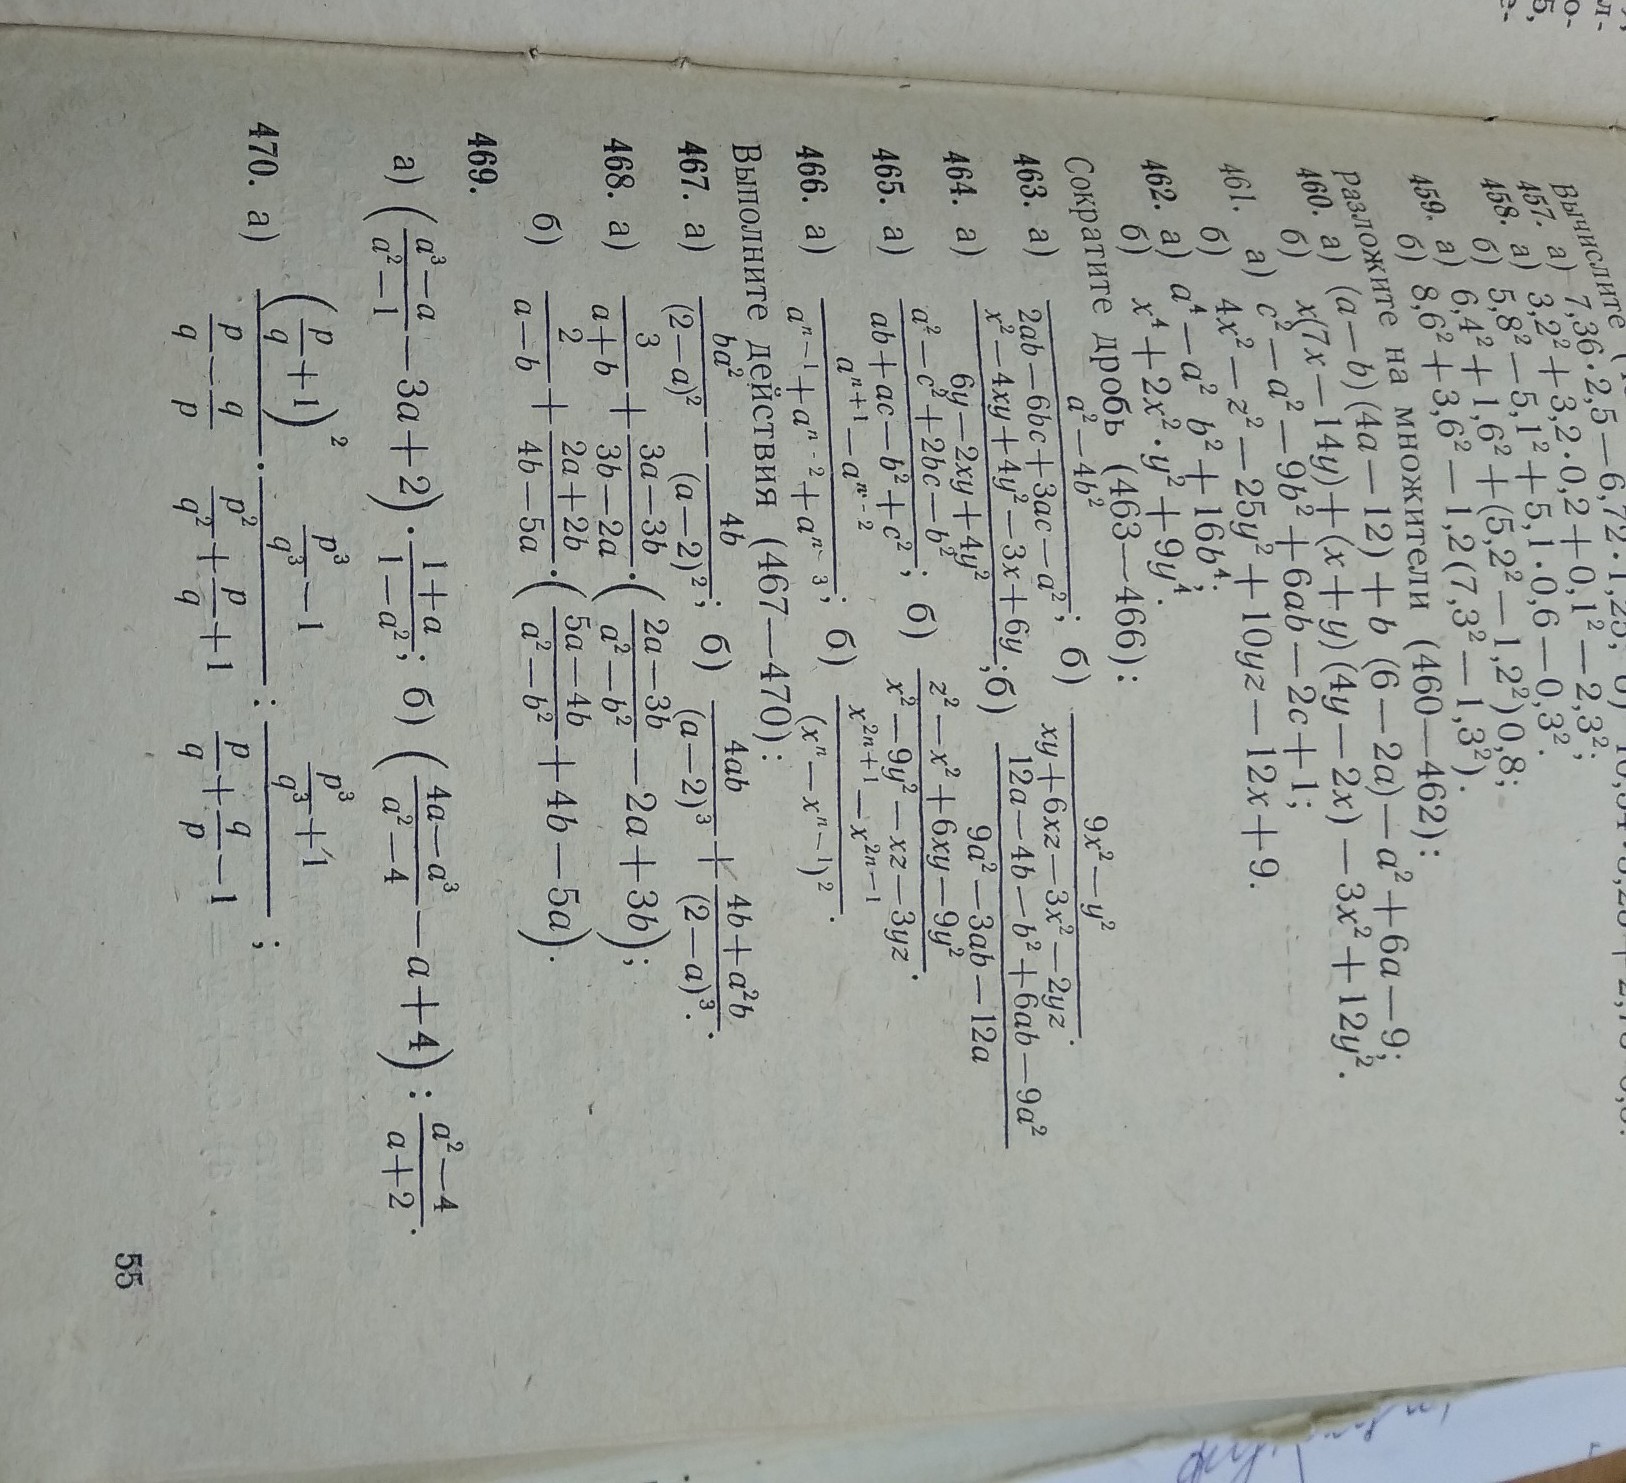 Вычислите
457. а) 7,36·2,5—6,72·1,25;
458. а) 3,2²+3,2·0,2+0,1²—2,3²;
б) 5,8²—5,1²+5,1·0,6—0,3².
459. а) 6,4²+1,6²+(5,2²—1,2²)0,8;
б) 8,6²+3,6²—1,2(7,3²—1,3²).
Разложите на множители (460—462):
460. а) (a—b)(4a—12)+b (6—2a)—a²+6a—9;
б) x(7x—14y)+(x+y)(4y—2x)—3x²+12y².
461. а) c²—a²—9b²+6ab—2c+1;
б) 4x²—z²—25y²+10yz—12x+9.
462. а) a⁴—a² b²+16b⁴;
б) x⁴+2x²·y²+9y⁴.
Сократите дробь (463—466):
463. а) (2ab—6bc+3ac—a²)/(a²—4b²); б) (9x²—y²)/(xy+6xz—3x²—2yz).
464. а) (x²—4xy+4y²—3x+6y)/(6y—2xy+4y²); б) (12a—4b—b²+6ab—9a²)/(9a²—3ab—12a)
465. а) (ab+ac—b²+c²)/(a²—c²+2bc—b²); б) (z²—x²+6xy—9y²)/(x²—9y²—xz—3yz).
466. а) (aⁿ⁺¹—aⁿ⁻²)/(aⁿ⁻¹+aⁿ⁻²+aⁿ⁻³); б) (x²ⁿ⁺¹—x²ⁿ⁻¹)/(xⁿ—xⁿ⁻¹)².
Выполните действия (467—470):
467. а) ba²/(2—a)² — 4b/(a—2)²; б) 4ab/(a—2)³ + (4b+a²b)/(2—a)³.
468. а) 3/(a+b) + (3a—3b)/(3b—2a)·((2a—3b)/(a²—b²)—2a+3b);
б) 2/(a—b) + (2a+2b)/(4b—5a)·((5a—4b)/(a²—b²)+4b—5a).
469.
а) ((a³—a)/(a²—1)—3a+2)·(1+a)/(1—a²); б) ((4a—a³)/(a²—4)—a+4):(a²—4)/(a+2).
470. а) (p/q+1)²/(p/q—q/p)·(p³/q³—1)/(p²/q²+p/q+1):(p³/q³+1)/(p/q+q/p—1);
55